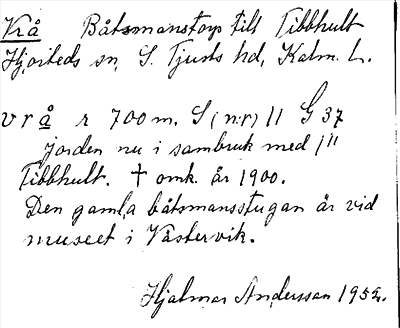 Vrå Båtsmanstorp till Tibbhult
Hjorteds sn, S. Tjusts hd, Kalm. L.
vrå r 700 m. S (nr) 11 G 37
jorden nu i sambruk med 1"
Tibbhult. † omk. år 1900.
Den gamla båtsmansstugan är vid
museet i Västervik.
Hjalmar Andersson 1952.